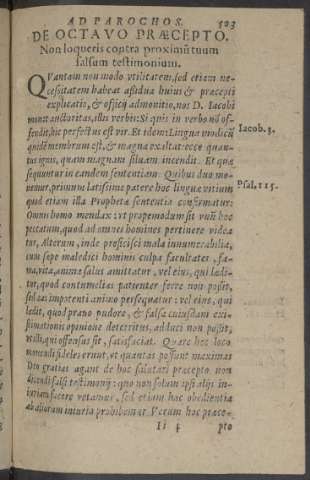 AD PAROCHOS. 523
DE OCTAVO PRÆCEPTO.
Non loqueris contra proximũ tuum
falsum testimonium.
QVantam non modo vtilitatem, sed etiam ne-
cessitatem habeat assidua huius & præcepti
explicatio, & officij admonitio, nos D. Iacobi
monet auctoritas, illis verbis: Si quis in verbo nõ of-
fendit, hic perfectus est vir. Et idem: Lingua modicũ
quidẽ membrum est, & magna exaltat: ecce quan-
tus ignis, quam magnam siluam incendit. Et quæ
sequuntur in eandem sententiam. Quibus duo mo-
nemur, primum latissime patere hoc linguæ vitium
quod etiam illa Prophetæ sententia confirmatur:
Omnis homo mendax: vt propemodum sit vnũ hoc
peccatum, quod ad omnes homines pertinere videa
tur, Alterum, inde proficisci mala innumerabilia,
cum sæpe maledici hominis culpa facultates, fa-
ma, vita, animæ salus amittatur, vel eius, qui lædi-
tur, quod contumelias patienter ferre non possit,
sed eas impotenti animo persequatur: vel eius, qui
lædit, quod prauo pudore, & falsa cuiusdam exi-
stimationis opinione deterritus, adduci non possit,
vt illi, qui offensus sit, satisfaciat. Quare hoc loco
monendi fideles erunt, vt quantas possunt maximas
Deo gratias agant de hoc salutari præcepto non
dicendi falsi testimonij: quo non solum ipsi alijs in-
iuriam facere vetamur, sed etiam hoc obedientia
ab aliorum iniuria prohibemur. Verum hoc præce-
Ii pto
Iacob. 3.
Psal. 115.